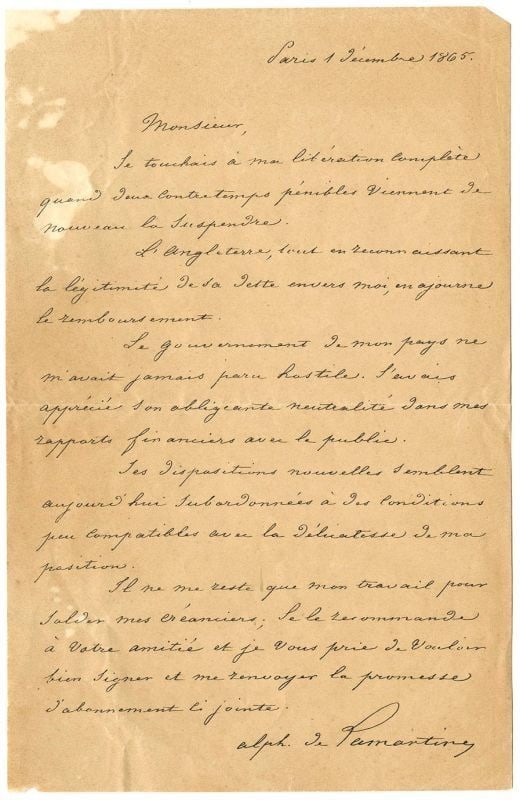 Paris 1 décembre 1865.
Monsieur,
Je touchais à ma libération complète
quand deux contretemps pénibles viennent de
nouveau la suspendre.
L'Angleterre, tout en reconnaissant
la légitimité de sa dette envers moi, en ajourne
le remboursement.
Le gouvernement de mon pays ne
m'avait jamais paru hostile. J'avais
apprécié son obligeante neutralité dans mes
rapports financiers avec le public.
Ses dispositions nouvelles semblent
aujourd'hui subordonnées à des conditions
peu compatibles avec la délicatesse de ma
position.
Il ne me reste que mon travail pour
solder mes créanciers; Je le recommande
à votre amitié et je vous prie de vouloir
bien signer et me renvoyer la promesse
d'abonnement ci jointe.
alph. de Lamartine